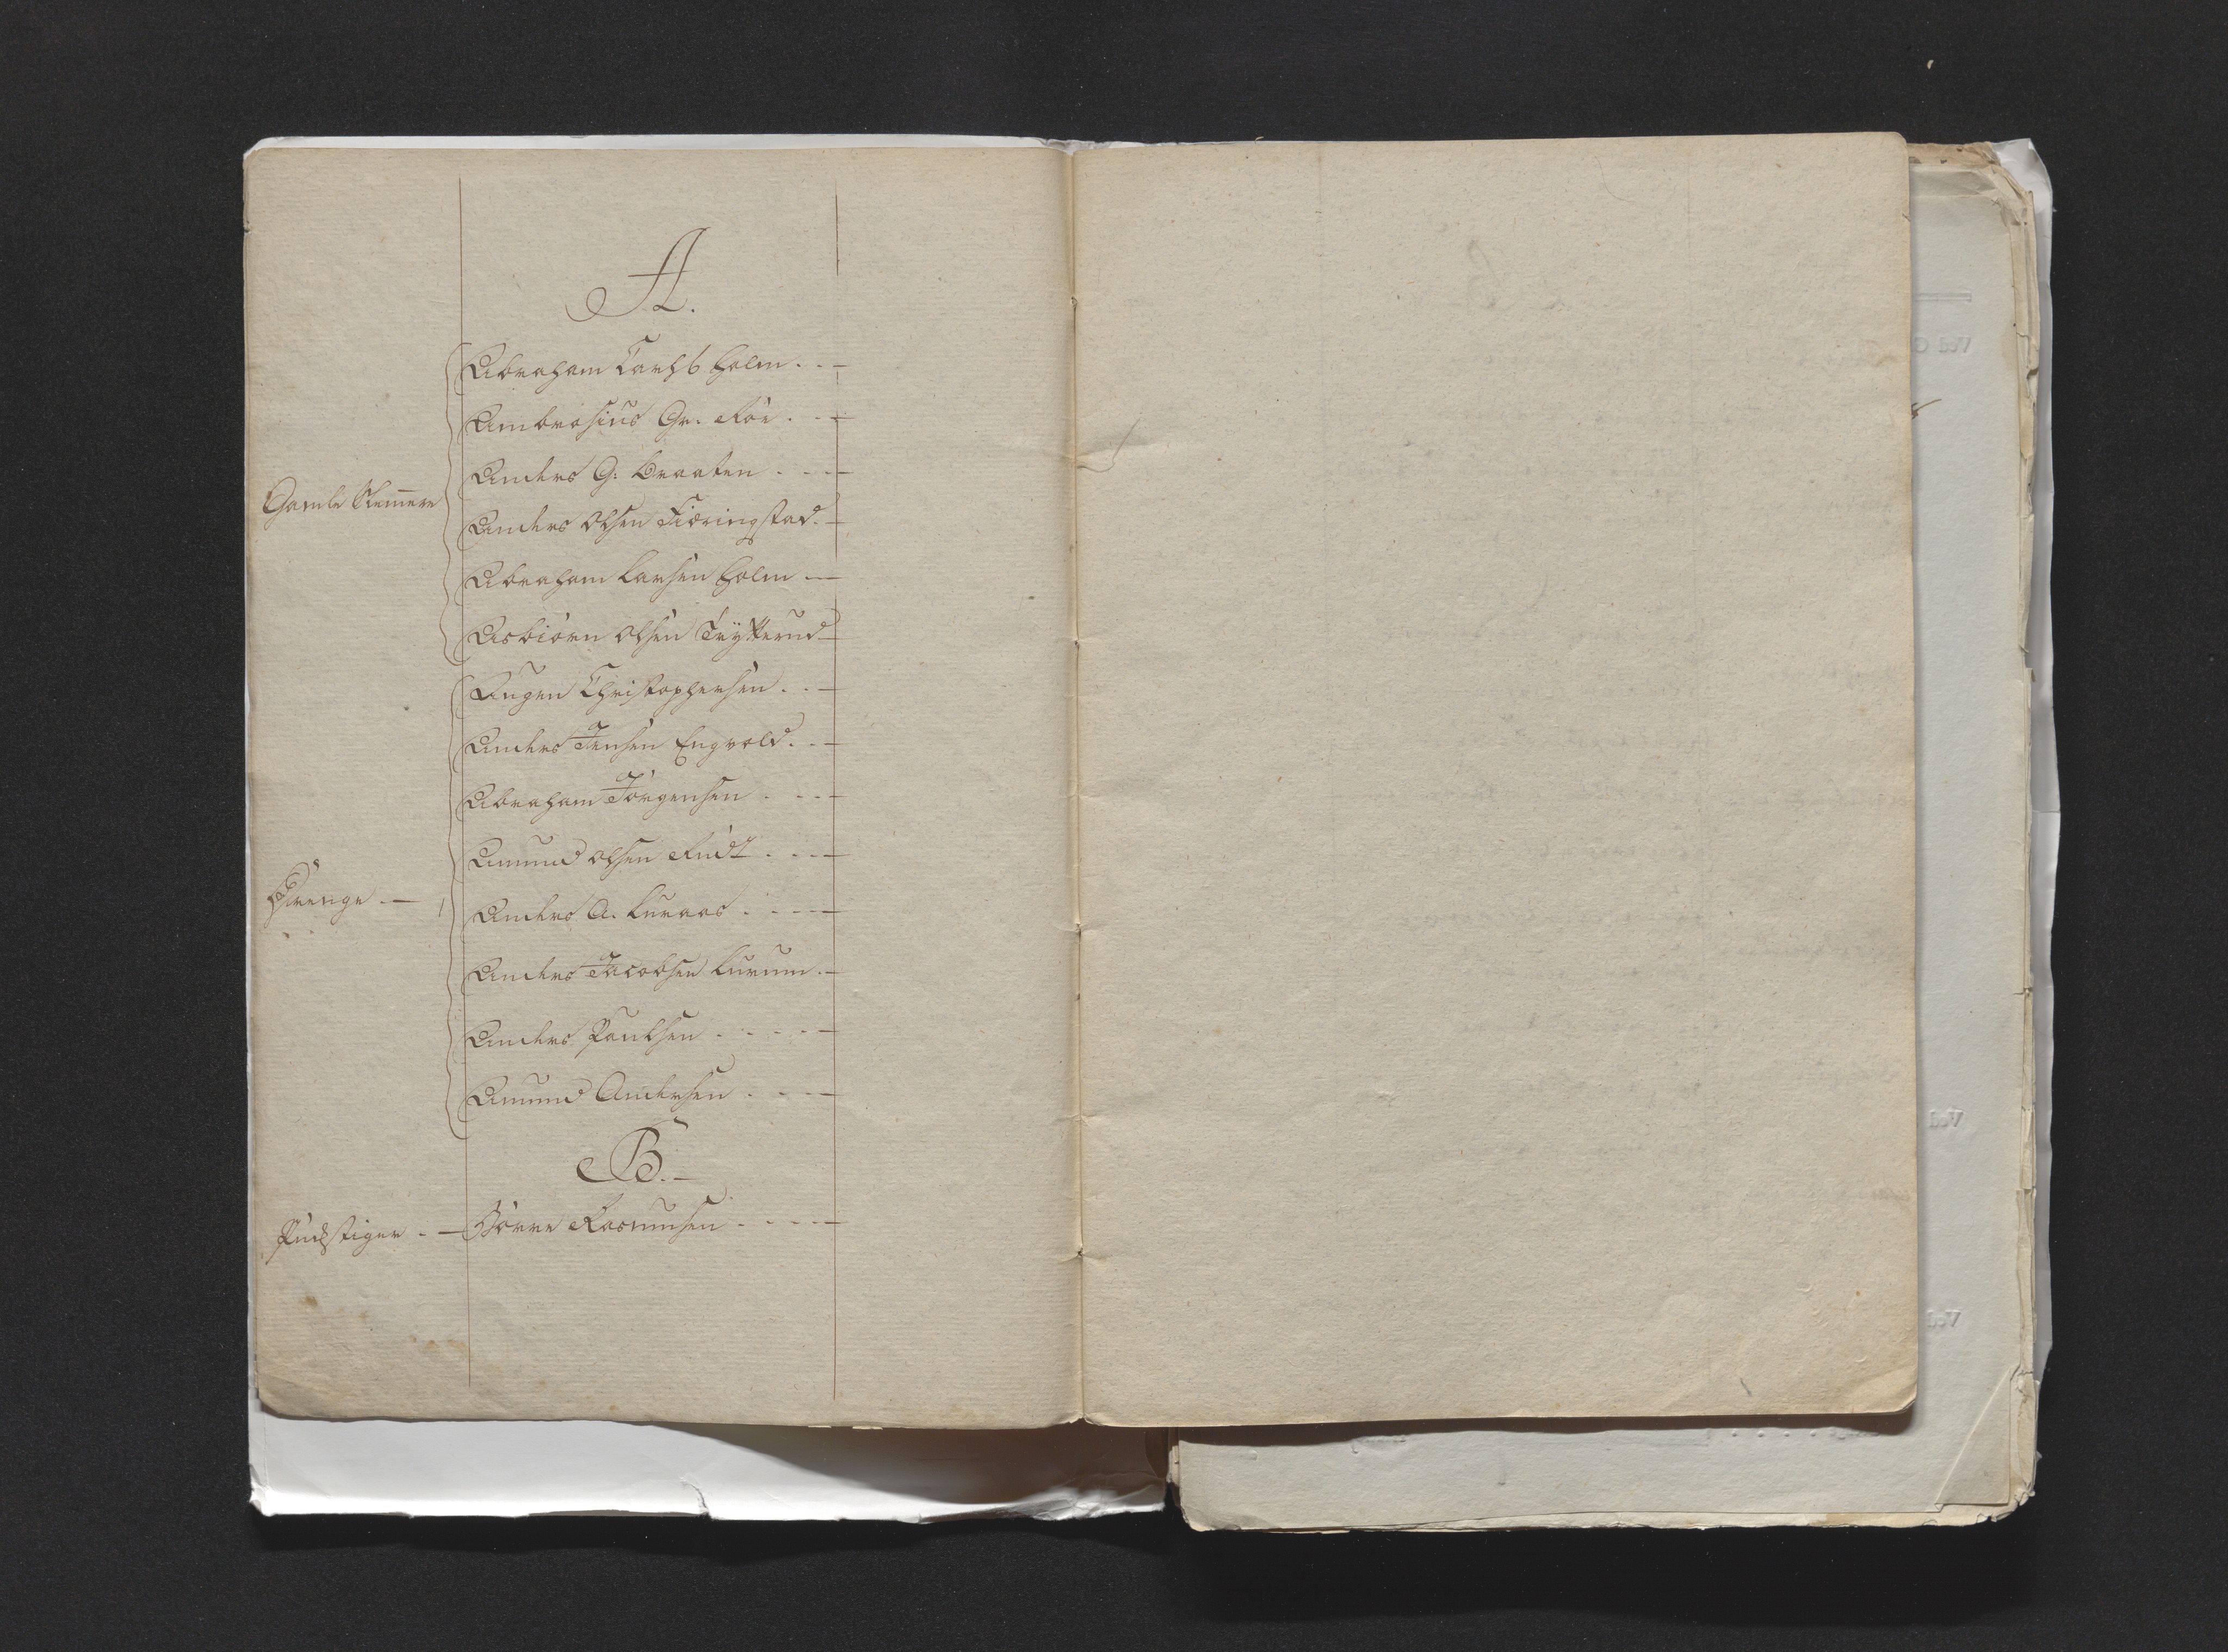 A.
Abraham Carls Holm . . —
Ambrosius Gr. Roe . . —
Anders G: Braaten . . —
Gamle Stemere
Anders Olsen Fiøringstad. —
Abraham Larsen Holm —
Asbiørn Olsen Trytterud —
Augen Christophersen . . —
Anders Jensen Engvold . . —
Abraham Jørgensen . . . —
Amund Olsen Rudt . . . —
Drenge . —
Anders A. Luraas . . . —
Anders Jacobsen Lurum . —
Anders Paulsen . . . . —
Amund Andersen . . . —
B. —
Pudstiger . — Børre Rasmusen . . . . —